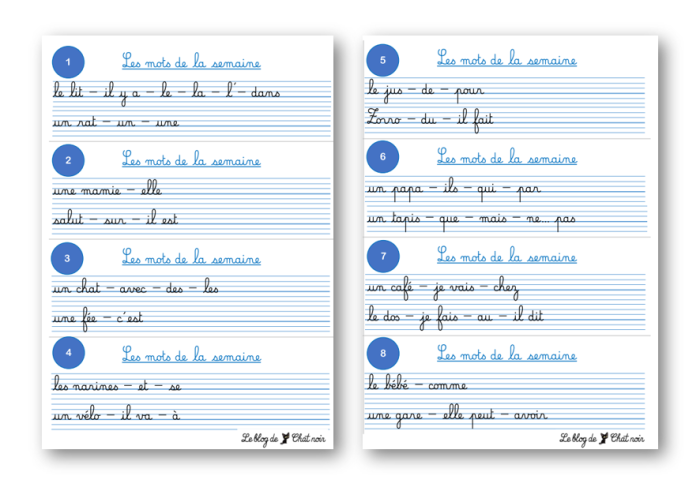 1
Les mots de la semaine
le lit – il y a – le – la – l' – dans
un rat – un – une
2
Les mots de la semaine
une mamie – elle
salut – sur – il est
3
Les mots de la semaine
un chat – avec – des – les
une fée – c'est
4
Les mots de la semaine
les narines – et – se
un vélo – il va – à
Le blog de Chat noir
5
Les mots de la semaine
le jus – de – pour
Zorro – du – il fait
6
Les mots de la semaine
un papa – ils – qui – par
un tapis – que – mais – ne... pas
7
Les mots de la semaine
un café – je vais – chez
le dos – je fais – au – il dit
8
Les mots de la semaine
le bébé – comme
une gare – elle peut – avoir
Le blog de Chat noir